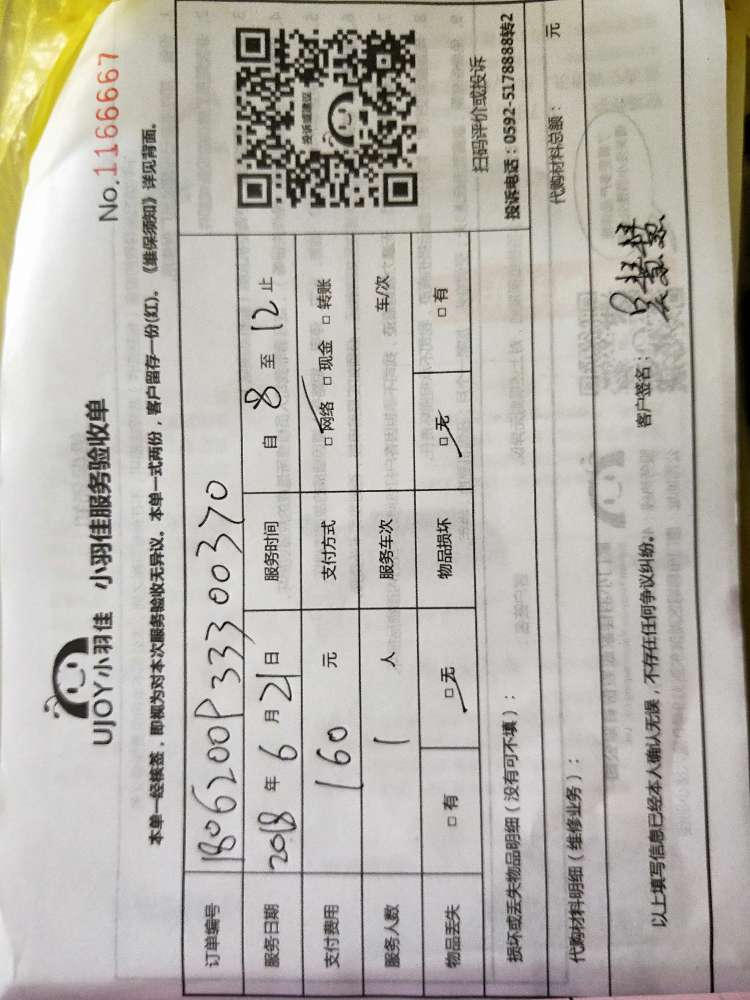 UJOY小羽佳 小羽佳服务验收单
No.1166667
本单一经核签，即视为对本次服务验收无异议。本单一式两份，客户留存一份(红)。《维保须知》详见背面。
订单编号 1806200P33300370
服务日期 2018 年 6 月 21 日 服务时间 自 8 至 12 止
支付费用 160 元 支付方式 □ 网络 □ 现金 □ 转账
服务人数 1 人 服务车次 车/次
物品丢失 □ 有 □ 无 物品损坏 □ 无 □ 有
投诉或建议
扫码评价或投诉
投诉电话：0592-5178888转2
损坏或丢失物品明细（没有可不填）：
代购材料明细（维修业务）： 代购材料总额： 元
以上填写信息已经本人确认无误，不存在任何争议纠纷。 客户签名：